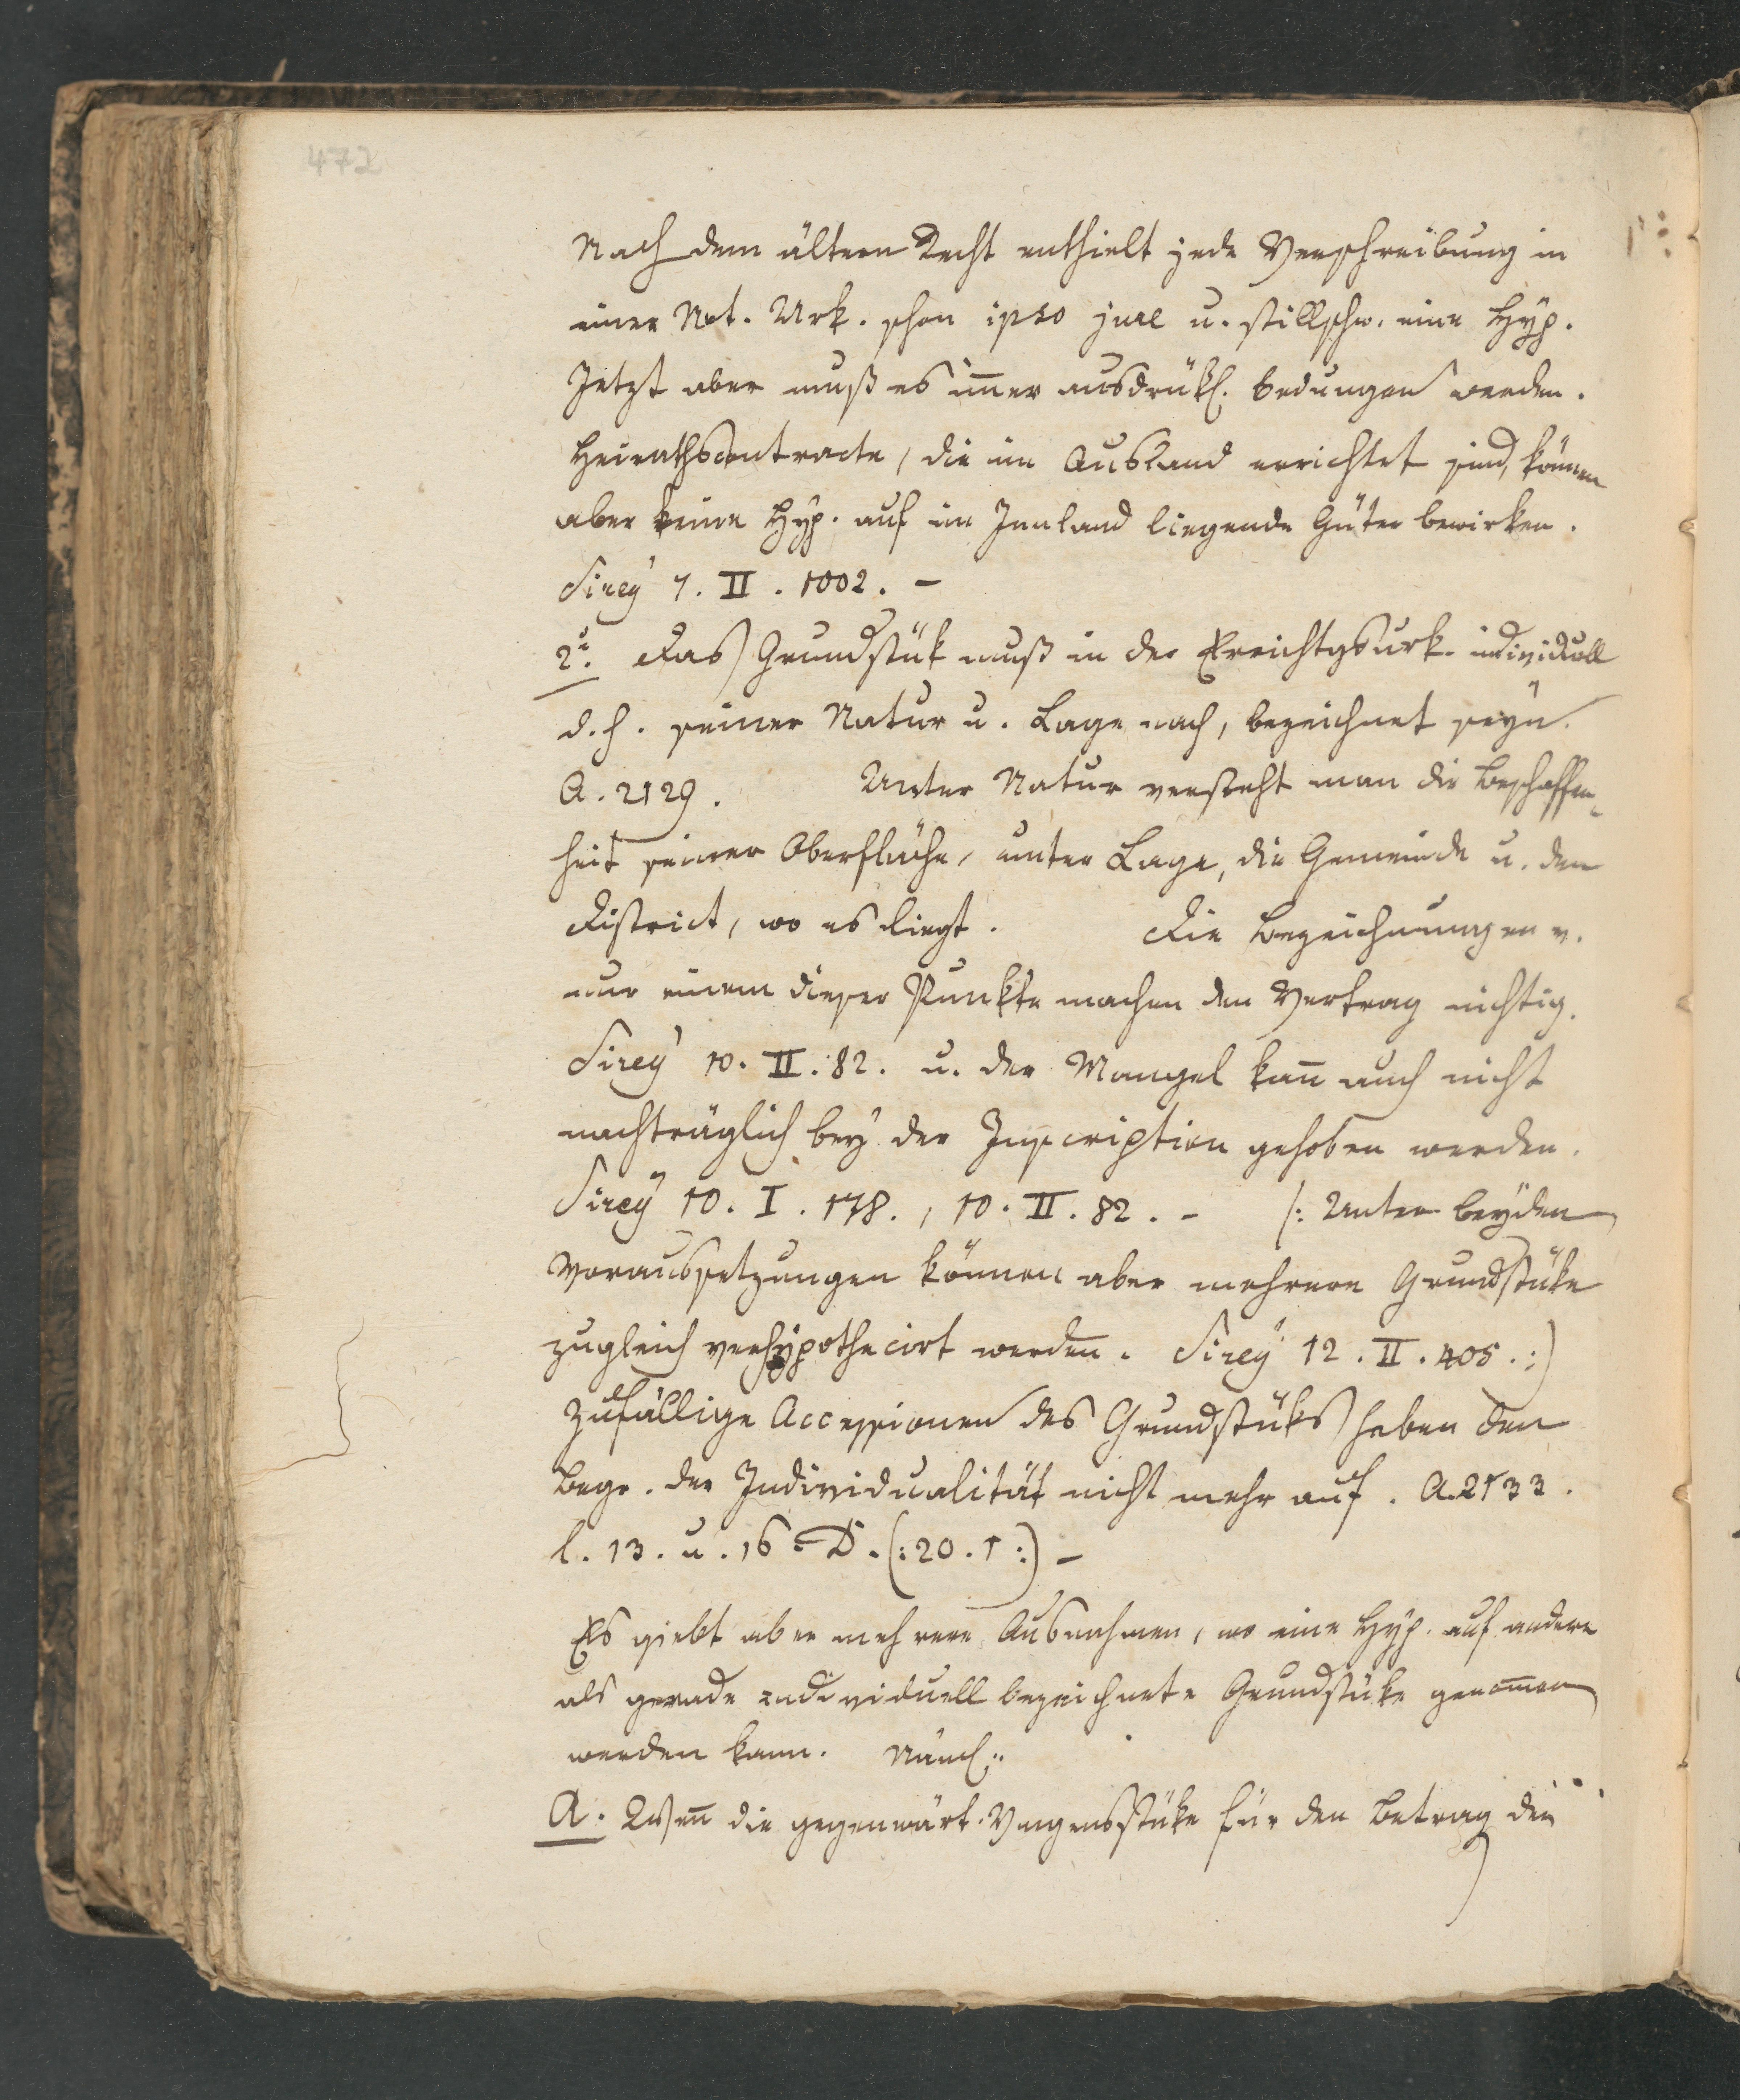 472
Nach dem ältern Recht enthielt jede Verschreibung in
einer Not. Urk. schon ipso jure u. stillschw. eine Hyp.
Jetzt aber muß es im̄er ausdrükl. bedungen werden.
Heirathscontracte, die im Ausland errichtet sind, können
aber keine Hyp. auf im Innland liegende Güter bewirken.
Sirey 7. II. 1002. –
2. Das Grundstük muß in der Errichtgsurk. individuell
d. h. seiner Natur u. Lage nach, bezeichnet seyn.
A. 2129. Unter Natur versteht man die Beschaffen-
heit seiner Oberfläche, unter Lage, die Gemeinde u. den
District, wo es liegt. Die Bezeichnungen v.
nur einem dieser Punkte machen den Vertrag nichtig.
Sirey 10. II. 82. u. der Mangel kan̄ auch nicht
nachträglich bey der Inscription gehoben werden.
Sirey 10. I. 178., 10. II. 82. – /: Unter beyden
Voraussetzungen können aber mehrere Grundstüke
zugleich verhypothecirt werden. Sirey 12. II. 405. :)
Zufällige Accessionen des Grundstüks heben den
Begr. der Individualität nicht mehr auf. A. 2133.
l. 13. u. 16 D. (: 20. 1 :) –
Es giebt aber mehrere Ausnahmen, wo eine Hyp. auf andere
als gerade individuell bezeichnete Grundstüke genom̄en
werden kann. Näml:
A. Wen̄ die gegenwärt. Vmgensstüke für den Betrag der